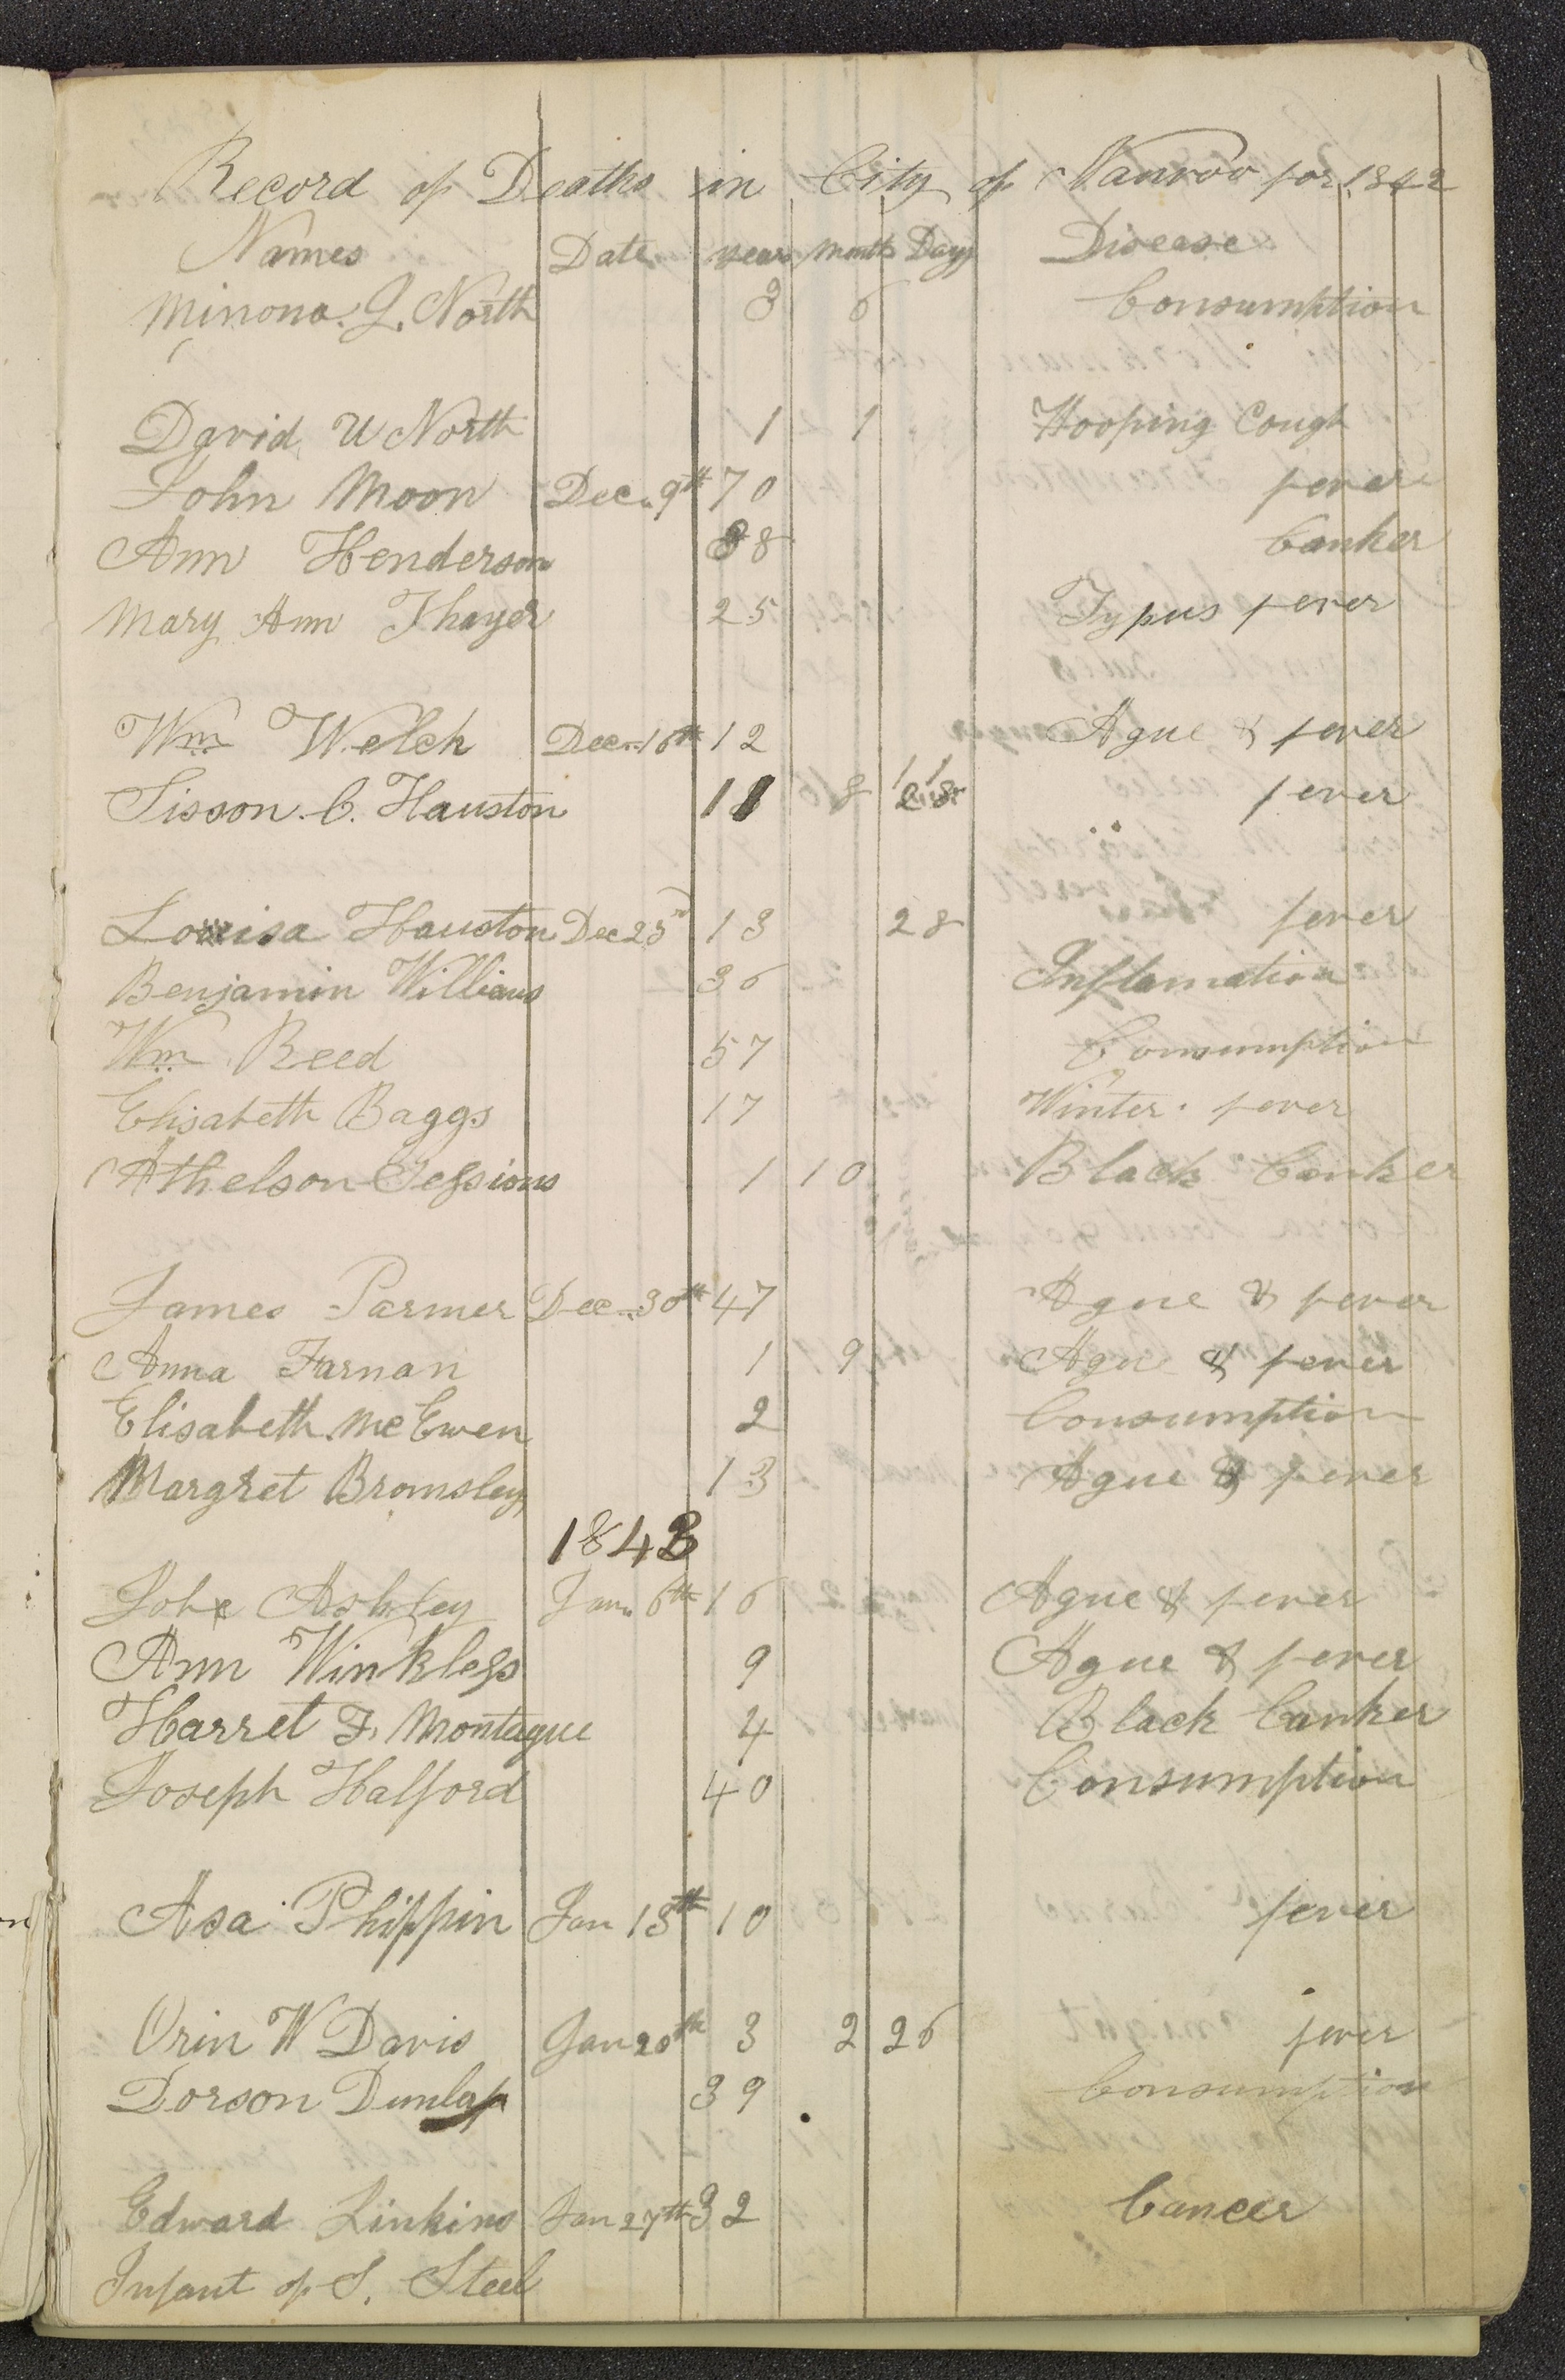 Record of Deaths in City of Nauvoo for 1842
Names Date years Month Days Disease
Minona. J. North 3 6 Consumption
David U North 1 1 Hooping Cough
John Moon Dec. 9th 70 fever
Ann Henderson 88 Canker
Mary Ann Thayer 25 Typus fever
Wm Welch Dec. 16th 12 Ague & fever
Sisson. C. Hauston 11 8 fever
Louisa Hauston Dec 23rd 13 28 fever
Benjamin Williams 36 Inflamation
Wm Reed 57 Consumption
Elisabeth Baggs 17 Winter. fever
Athelson Sessions 1 10 Black Canker
James Parmer Dec. 30th 47 Ague & fever
Anna Farnan 1 9 Ague & fever
Elisabeth McEwen 2 Consumption
Margret Bromsley 13 Ague & fever
1843
Ashley Jan. 6th 16 Ague & fever
Ann Winkless 9 Ague & fever
Harret F. Montague 4 Black Canker
Joseph Halford 40 Consumption
Asa Phippin Jan 13th 10 fever
Orin W Davis Jan 20th 3 2 26 fever
Dorson Dunlap 39 Consumption
Edward Linkins Jan 27th 32 Cancer
Infant of S. Steel